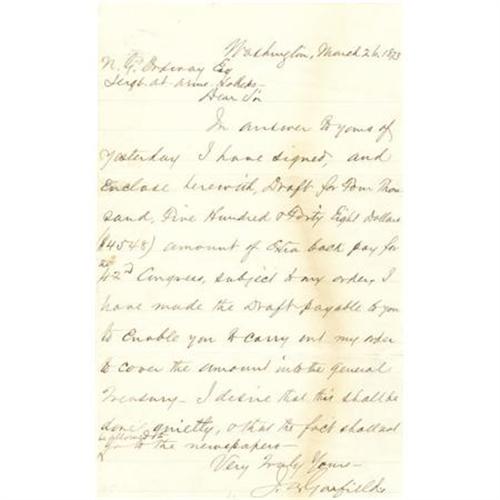 Washington, March 26, 1873
N. G. Ordway Esq
Sergt. at-arms
Dear Sir
In answer to yours of
yesterday I have signed, and
enclose herewith, Draft for Four Thou
sand, Five Hundred & Forty Eight Dollars
($4548) amount of Extra back pay for
the
42d Congress, subject to my order. I
have made the Draft payable to you
to enable you to carry out my order
to cover the amount into the general
Treasury - I desire that this shall be
done quietly, & that the fact shall not
be allowed to
go to the newspapers -
Very Truly Yours -
J. A. Garfield